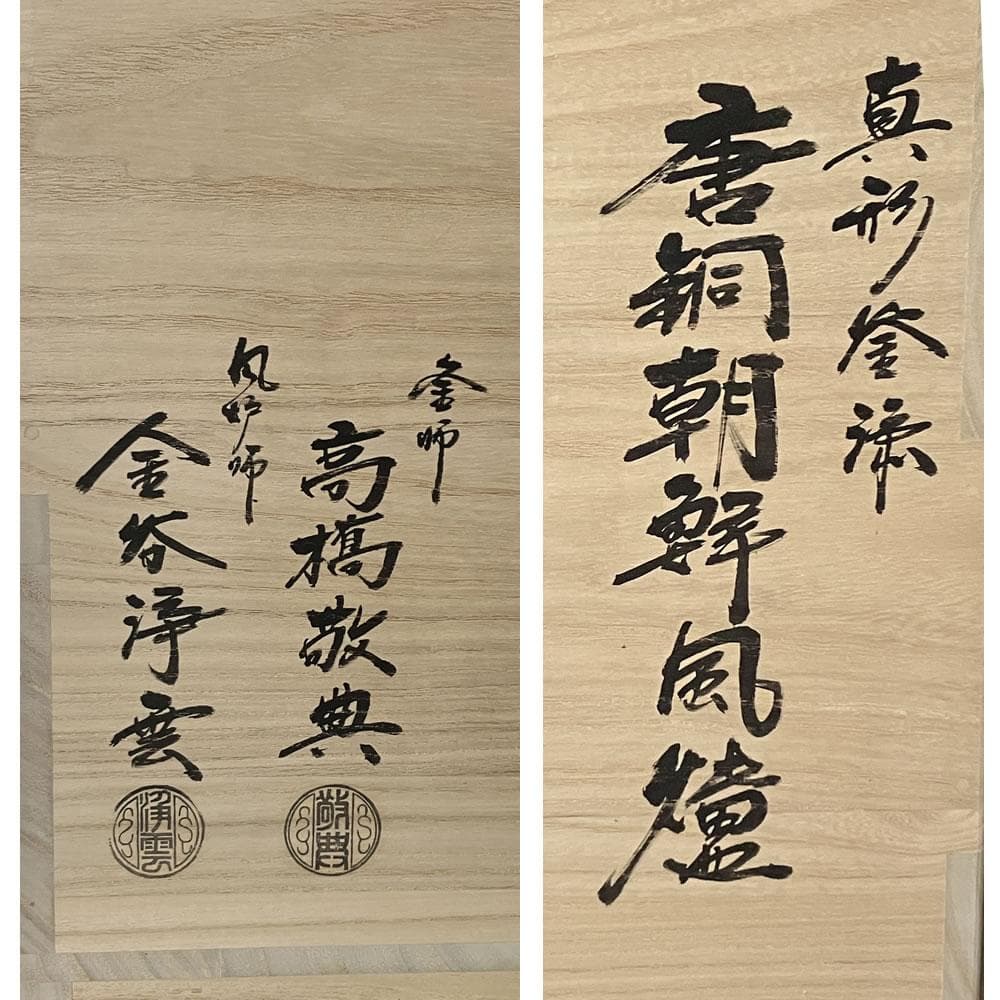 真形釜添
唐銅朝鮮風爐
釜師
高橋敬典
敬典
風炉師
金谷浄雲
淨雲